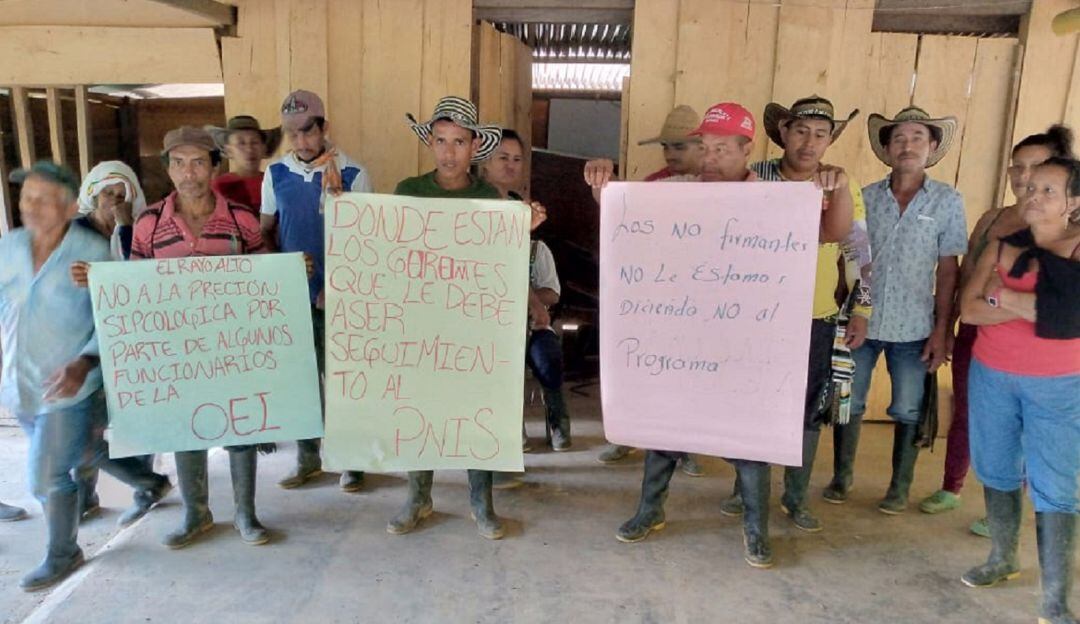 EL RAYO ALTO
NO A LA PRECIÓN
SIPCOLOGICA POR
PARTE DE ALGUNOS
FUNCIONARIOS
DE LA
OEI
DONDE ESTAN
LOS GERENTES
QUE LE DEBE
ASER
SEGUIMIEN-
TO AL
PNIS
Los NO firmantes
NO Le Estamos
Diciendo NO al
Programa